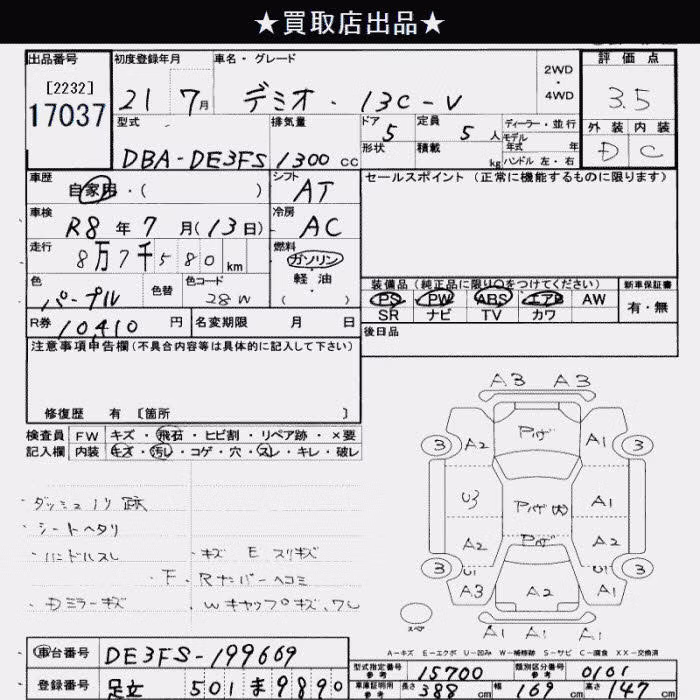 ★買取店出品★
出品番号
[2232]
17037
初度登録年月
21 7月
車名・グレード
デミオ・13C-V
2WD
・
4WD
評価点
3.5
外装 内装
D C
型式
DBA-DE3FS
排気量
1300 cc
ドア
5
形状
定員
5 人
積載
kg
ディーラー・並行
モデル
年式 年
ハンドル 左・右
車歴
自家用・( )
シフト
AT
車検
R8年7月(13日)
冷房
AC
走行
8万7千580 km
燃料
ガソリン
・
軽油
・
( )
色
パープル
色替
色コード
28W
R券
10410 円
名変期限 月 日
セールスポイント(正常に機能するものに限ります)
装備品(純正品に限り○をつけてください)
新車保証書
PS PW ABS エアB AW
SR ナビ TV カワ
有・無
後日品
注意事項申告欄(不具合内容等は具体的に記入して下さい)
修復歴 有 [箇所 ]
検査員
記入欄
FW キズ・飛石・ヒビ割・リペア跡・×要
内装 キズ・汚レ・コゲ・穴・スレ・キレ・破レ
・ダッシュノリ跡
・シートヘタリ
・ハンドルスレ ・キズ E スリキズ
・F、Rナンバーヘコミ
・Dミラーキズ ・Wキャップキズ、ワレ
A3 A3
3 A2 Pハゲ A1 3
U3 Pハゲ(大) A1
A2 Pハゲ A2
3 U1 U1 3
A3 A2 A1
スペア
A1 A1 A1
A-キズ E-エクボ U-凹み W-補修跡 S-サビ C-腐食 XX-交換済
車台番号
DE3FS-199669
登録番号
足立 501 ま 9890
型式指定番号
参考
15700
類別区分番号
参考
0101
車庫証明用
参考
長さ 388 cm 幅 169 cm 高さ 147 cm